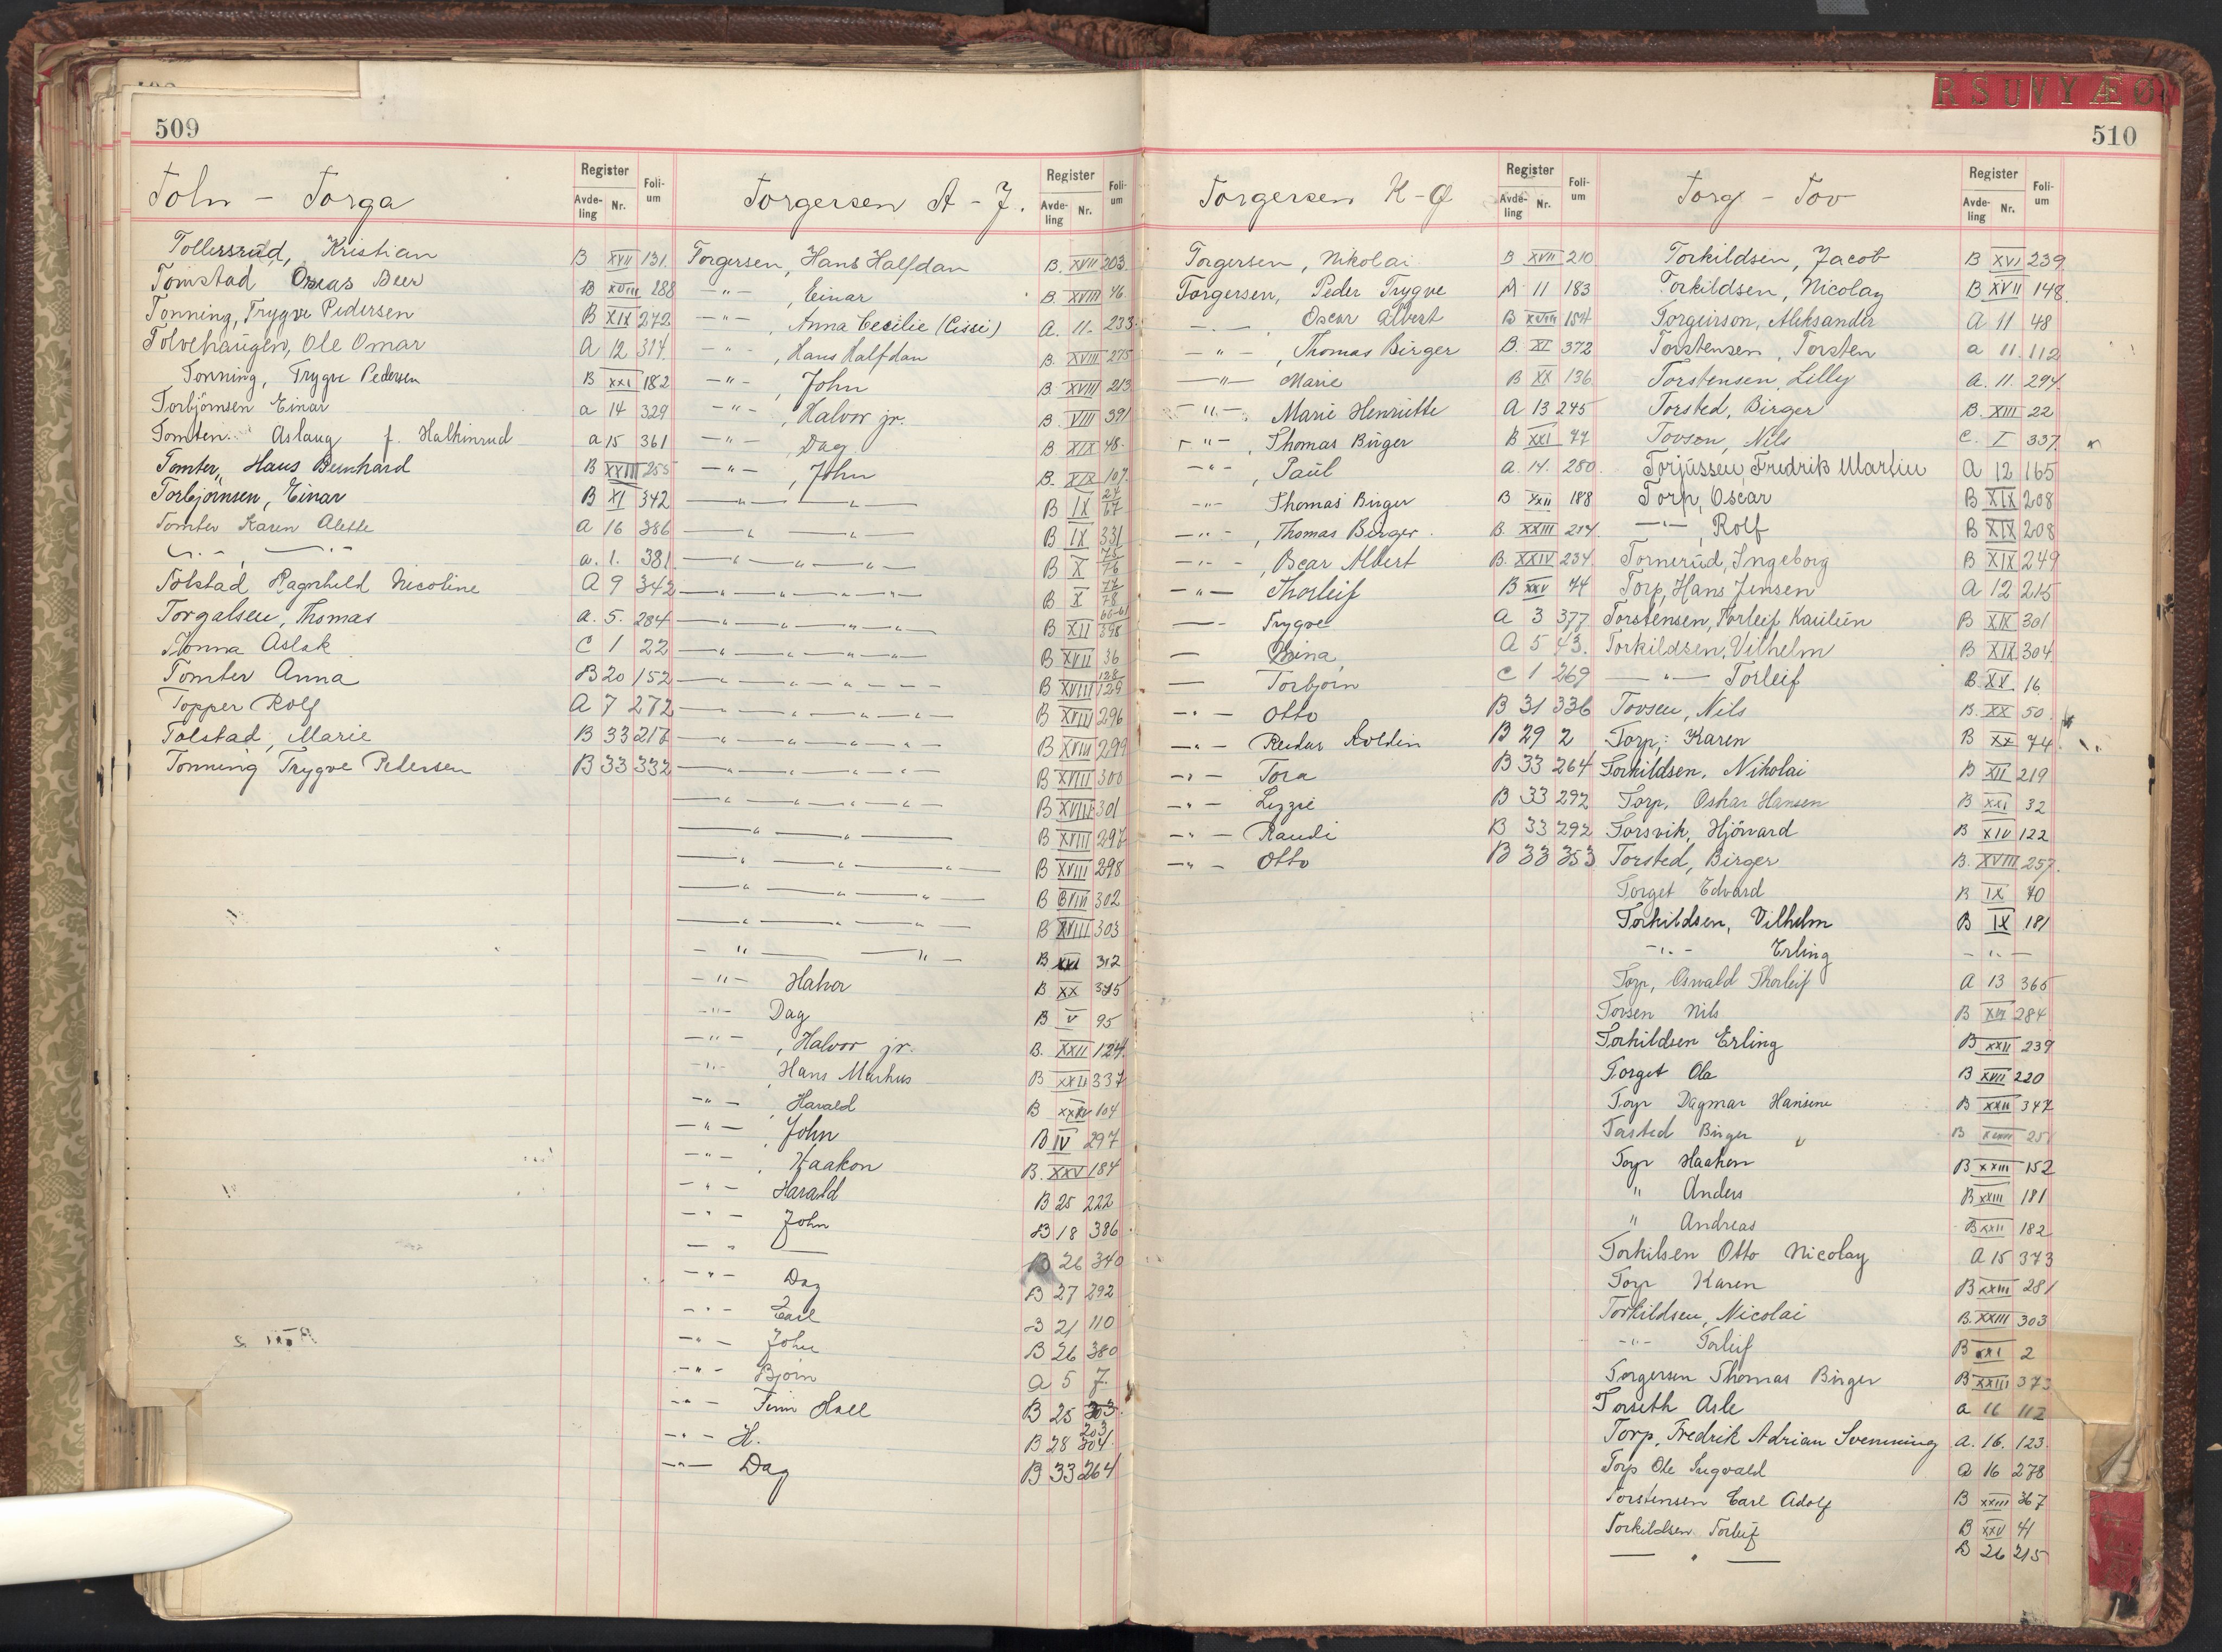 R S U V Y Æ Ø
509
Register
Foli-um
Avde-ling Nr.
Toln - Torga
Tollersrud, Kristian B XVII 131.
Tomstad Oseas Beer B XVIII 288
Tonning, Trygve Pedersen B XIX 272
Tolvehaugen, Ole Omar A 12 314.
Tonning, Trygve Pedersen B XXI 182
Torbjörnsen Einar a 14 329
Tomten Aslaug f. Halkinrud a 15 361
Tomter, Hans Bernhard B XXIII 255
Torbjörnsen, Einar B XI 342
Tomter Karen Alette A 16 386
-"- , -"- a. 1. 381
Tolstad Ragnhild Nicoline A 9 342
Torgalsen, Thomas a. 5. 284
Tonna Aslak C 1 22
Tomter Anna B 20 152
Topper Rolf A 7 272
Tolstad, Marie B 33 217
Tonning Trygve Pedersen B 33 332
Register
Foli-um
Avde-ling Nr.
Torgersen A - J.
Torgersen, Hans Halfdan B. XVII 203.
-"- , Einar B. XVIII 46.
-"- , Anna Cecilie (Cissi) A. 11. 233.
-"- , Hans Halfdan B. XVIII 275
-"- , John B. XVIII 213
-"- , Halvor jr. B. VIII 391
-"- , Dag B. XIX 48.
-"- , John B. XIX 107.
-"- -"- B IX 27 67
-"- -"- B IX 331
-"- -"- B X 75 76
-"- -"- B X 77 78
-"- -"- B XII 60-61 398
-"- -"- B XVII 36
-"- -"- B XVIII 128 129
-"- -"- B XVIII 296
-"- -"- B XVIII 299
-"- -"- B XVIII 300
-"- -"- B XVIII 301
-"- -"- B XVIII 297
-"- -"- B XVIII 298
-"- -"- B XVIII 302
-"- -"- B XVIII 303
-"- -"- B XXI 312
-"- Halvor B XX 375
-"- Dag B V 95
-"- , Halvor jr. B. XXII 124.
-"- , Hans Markus B XXII 337
-"- , Harald B XXIV 104
-"- , John B IV 297
-"- , Haakon B. XXV 184
-"- Harald B 25 222
-"- John B 18 386
-"- — B 26 340
-"- Dag B 27 292
-"- Carl B 21 110
-"- John B 26 380
-"- Bjørn a 5 7
-"- Finn Hall B 25 303.
-"- H. B 28 203 204.
-"- Dag B 33 264
510
Register
Foli-um
Avde-ling Nr.
Torgersen K-Ø
Torgersen, Nikolai B XVII 210
Torgersen, Peder Trygve A 11 183
-"- , Oscar Albert B XVIII 154
-"- , Thomas Birger B. XI 372
-"- Marie B XX 136
-"- Marie Henriette A 13 245
-"- , Thomas Birger B XXI 77
-"- , Paul a. 14. 280.
-"- Thomas Birger B XXII 188
-"- , Thomas Birger. B. XXIII 214.
-"- , Oscar Albert B. XXIV 234.
-"- Thorleif B XXV 74
— Trygve A 3 377
— Mina A 5 43.
— Torbjørn C 1 269
-"- Otto B 31 336
-"- Reidar Roldin B 29 2
-"- Tora B 33 264
-"- Lizzie B 33 292
-"- Randi B 33 292
-"- Otto B 33 353
Register
Foli-um
Avde-ling Nr.
Torg - Tov
Torkildsen, Jacob B XVI 239
Torkildsen, Nicolay B XVII 148.
Torgeirson, Aleksander A 11 48
Torstensen, Torsten a 11. 112
Torstensen, Lilly A. 11. 294
Torsted, Birger B. XIII 22
Tovsen, Nils C. I 337.
Torjussen, Fredrik Martin A 12 165
Torp, Oscar B XIX 208
-"- , Rolf B XIX 208
Tornerud, Ingeborg B XIX 249
Torp, Hans Jensen A 12 215
Torstensen, Torleif Kaulin B XIX 301
Torkildsen, Vilhelm B XIX 304
-"- Torleif B XV 16
Tovsen, Nils B. XX 50.
Torp, Karen B XX 74.
Torkildsen, Nikolai B XII 219
Torp, Oskar Hansen B XXI 32
Torsvik, Hjörvard B XIV 122
Torsted, Birger B. XVIII 257.
Torget Edvard B IX 70
Torkildsen, Vilhelm B IX 181
-"- Erling -"-
Torp, Oswald Thorleif A 13 365
Tovsen Nils B XVI 284
Torkildsen Erling B XXII 239
Torget Ola B XVII 220
Torp Dagmar Hansine B XXII 347
Torsted Birger B XVIII 257
Torp Haakon B XXIII 152
" Anders B XXIII 181
" Andreas B XXII 182
Torkilsen Otto Nicolay A 15 373
Torp Karen B XXIII 281
Torkildsen, Nicolai B. XXIII 303
-"- Torleif B XXI 2
Torgersen Thomas Birger B XXIII 373
Torseth Asle a 16 112
Torp, Fredrik Adrian Svenning A. 16. 123.
Torp Ole Ingvald a 16 278
Torstensen Carl Adolf B XXIII 367
Torkildsen Torleif B XXV 41
— " — B 26 215